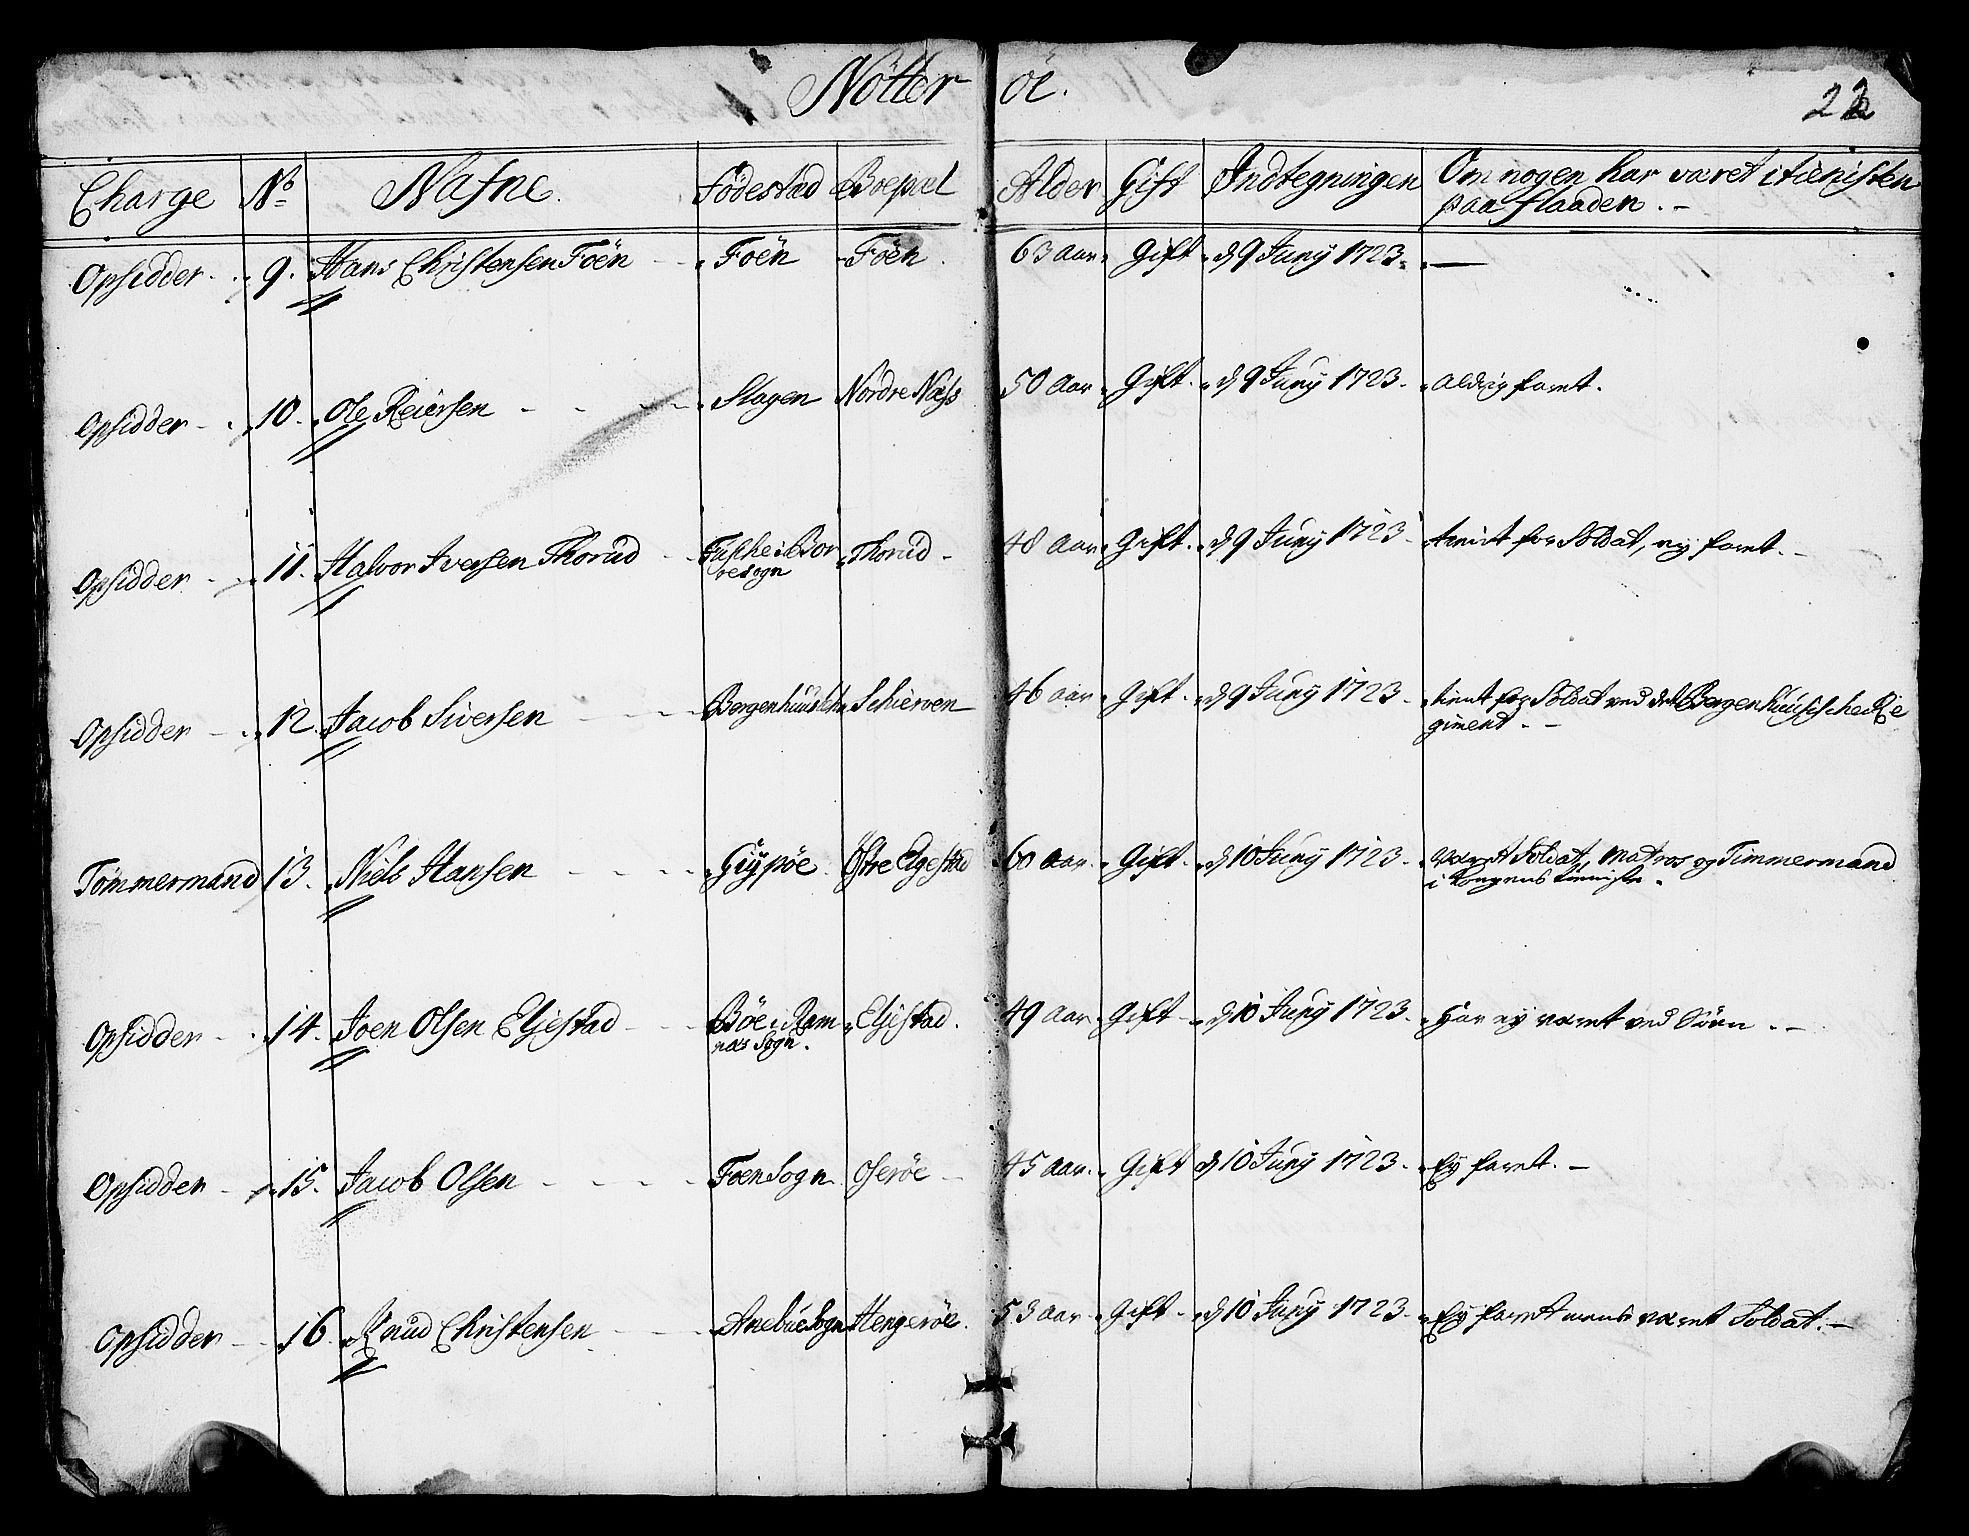 Nötter öe.
22
Charge No Nafne. Födestæd Boepæl Alder Gift Indtegningen Om nogen har været i tienisten
paa flaaden.
Opsidder 9. Hans Christensen Föen Föen Föen 63 aar Gift d 9 Juny 1723. —
Opsidder 10. Ole Reiersen Slagen Nordre Næss 50 aar Gift d 9 Juny 1723. aldrig faret.
Opsidder 11. Halvor Iversen Thorud i Bor Thorud 48 aar Gift d 9 Juny 1723 tient for Soldat, ey faret.
resogn
Opsidder 12. Jacob Siversen Bergenhuus Schierven 46 aar Gift d 9 Juny 1723. tient for Soldat ved det Bergenhusische Re
giment.
Tömmermand 13. Niels Hansen Östre Elgestad 60 aar Gift d 10 Juny 1723. været Soldat, Matros og Timmermand
i Kongens tieniste.
Opsidder 14. Joen Olsen Eljestad Böe i Ram Eljestad. 49 aar Gift d 10 Juny 1723. Har ey været ved Söen.
næs Sogn.
Opsidder 15. Jacob Olsen Foen Sogn Oserøe 45 aar. Gift d 10 Juny 1723. Ey faret.
Opsidder 16. Knud Christensen Anebue Sogn Hengeröe. 53 aar Gift d 10 Juny 1723. Ey faret mens været Soldat.